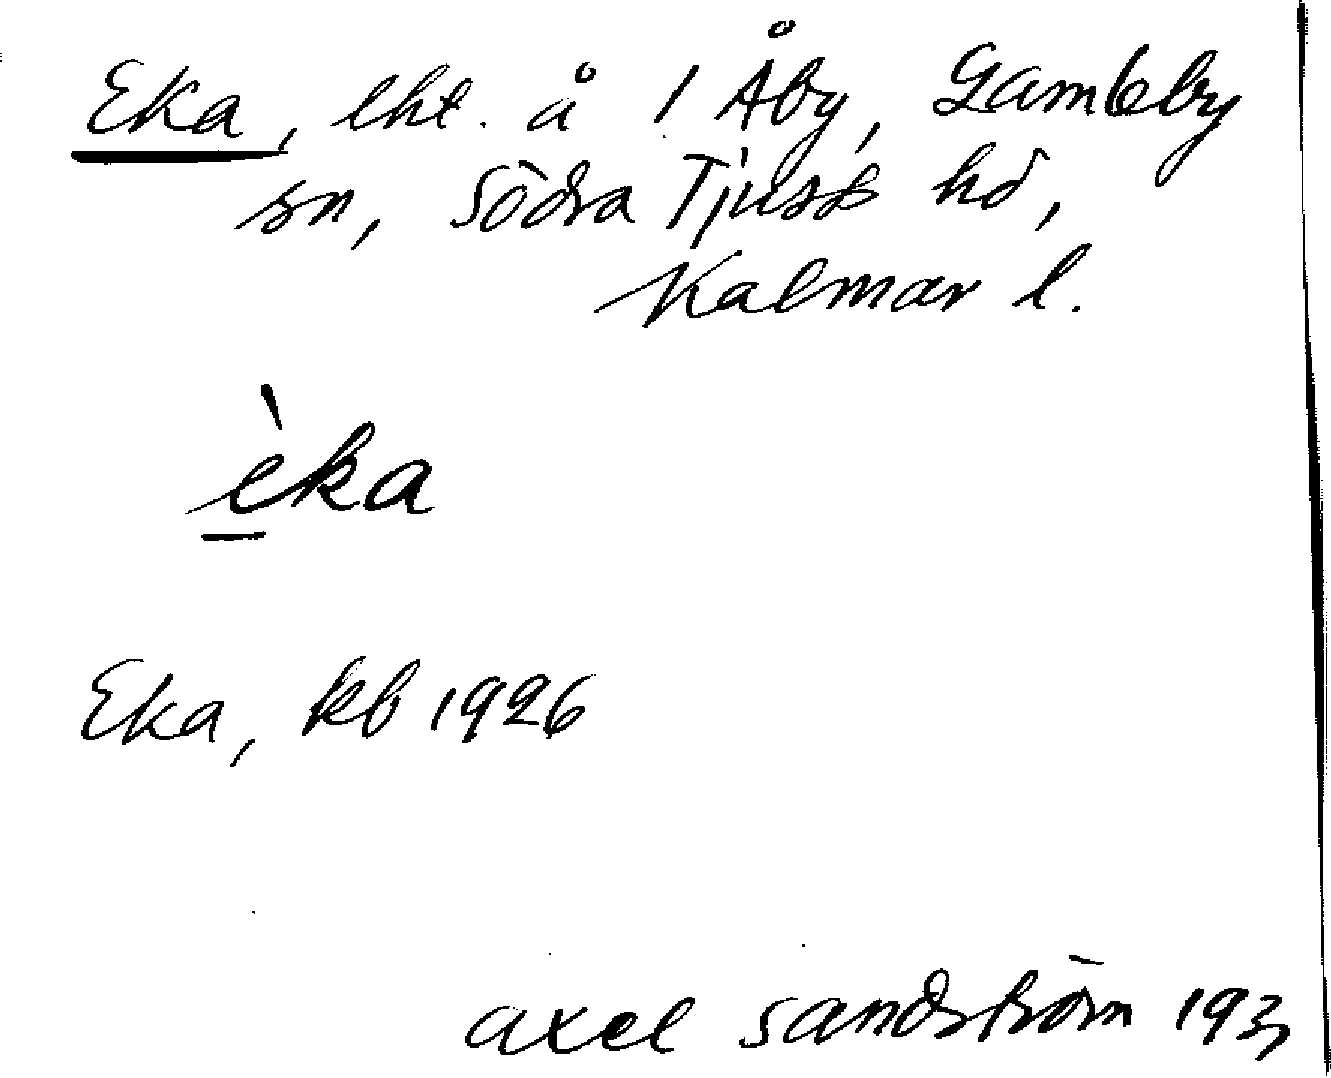 Eka, lht. å 1 Åby, Gamleby
sn, Södra Tjusts hd,
Kalmar l.
èka
Eka, kb 1926
Axel Sandström 193